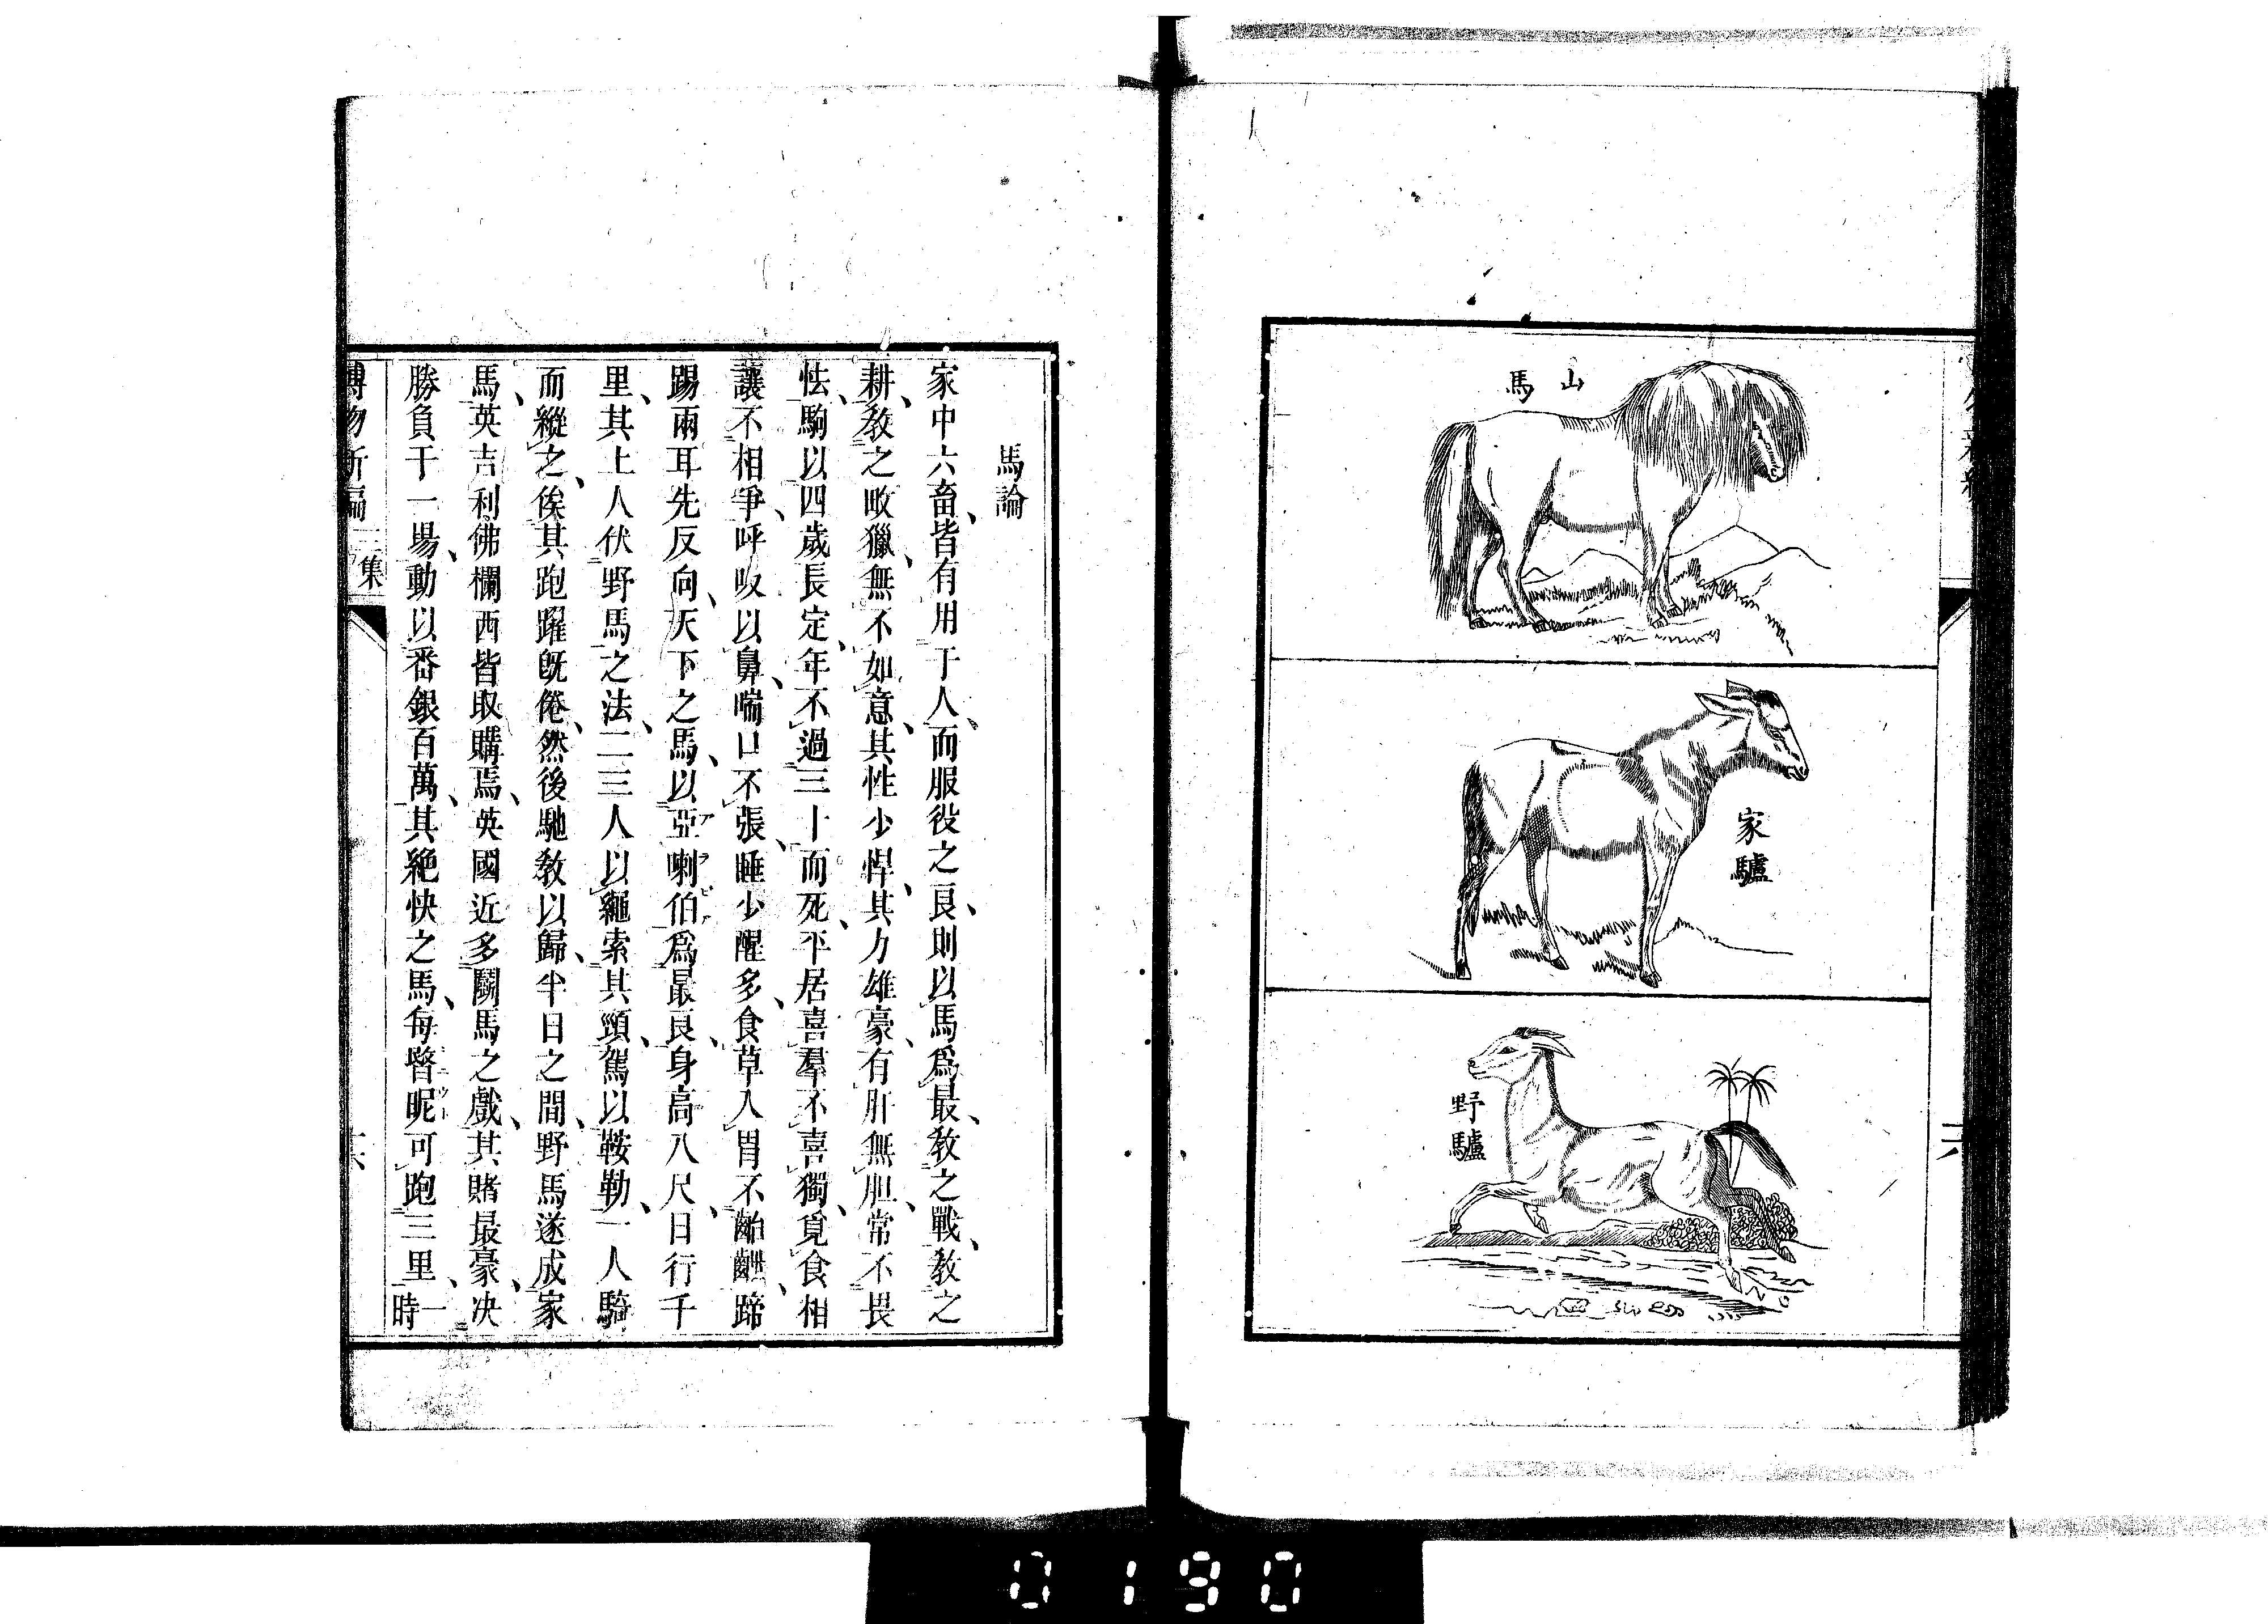 山馬
家驢
野驢
馬論
家中六畜、皆有用于人、而服役之良、則以馬爲最、敎之戰、敎之
耕、敎之畋獵、無不如意、其性少悍、其力雄豪、有肝無胆、常不畏
怯、駒以四歲長定、年不過三十而死、平居喜羣不喜獨、覓食相
讓不相爭、呼吸以鼻、喘口不張、睡少醒多、食草入胃不齝齛、蹄
踢兩耳先反向、天下之馬、以亞喇伯爲最良、身高八尺、日行千
里、其土人伏野馬之法、二三人以繩索其頸、駕以鞍勒、一人騎
而縱之、俟其跑躍旣倦、然後馳敎以歸、半日之間、野馬遂成家
馬、英吉利佛欄西皆取購焉、英國近多鬪馬之戲、其賭最豪、决
勝負于一場、動以番銀百萬、其絕快之馬、每瞥昵可跑三里、一時
博物新編 三集
0190